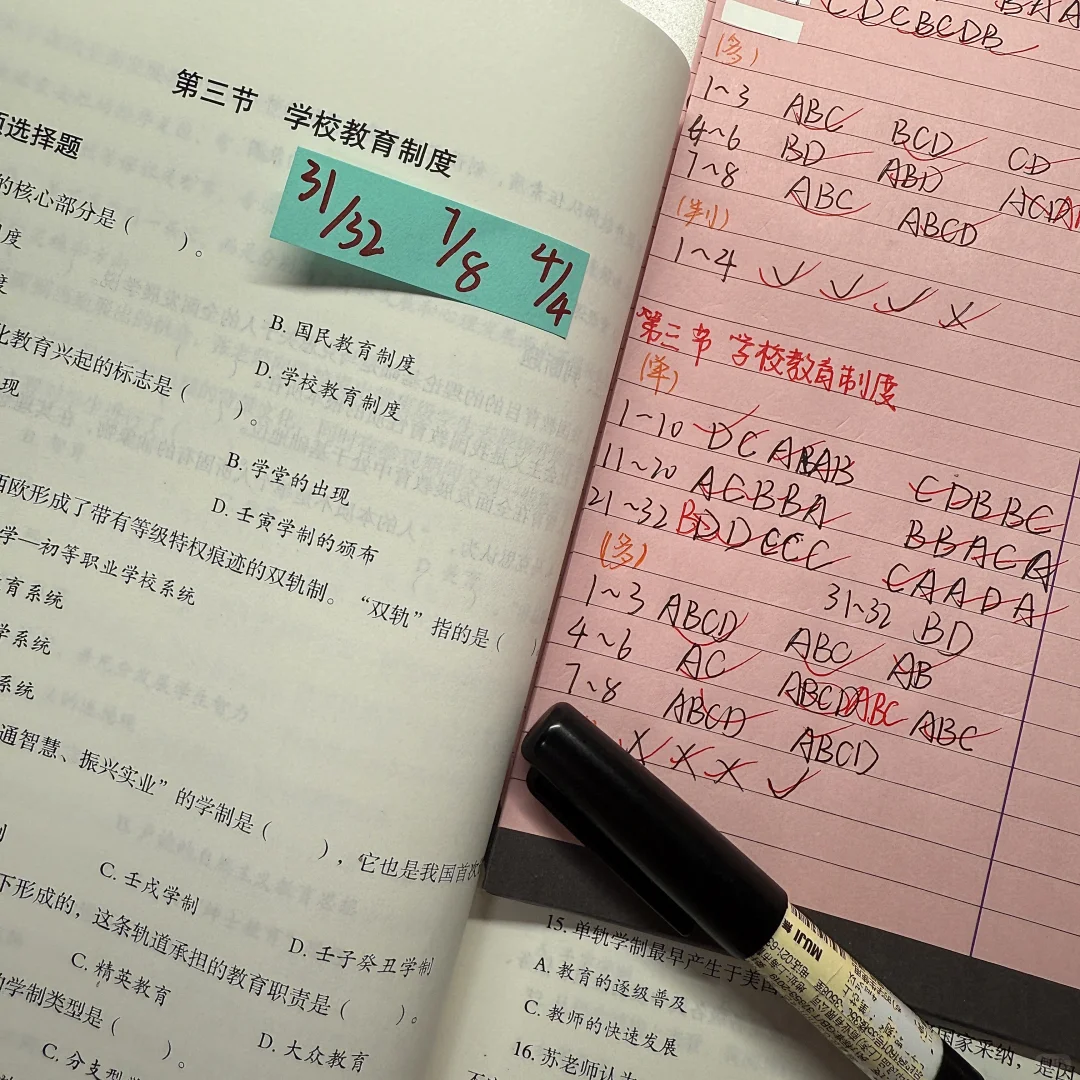 第三节 学校教育制度
项选择题
31/32 7/8 4/4
的核心部分是( )。
度
B. 国民教育制度
度
D. 学校教育制度
化教育兴起的标志是( )。
现
B. 学堂的出现
D. 壬寅学制的颁布
西欧形成了带有等级特权痕迹的双轨制。“双轨”指的是( )
学—初等职业学校系统
育系统
学系统
系统
通智慧、振兴实业”的学制是( ),它也是我国首次
制
C. 壬戌学制
D. 壬子癸丑学制
下形成的,这条轨道承担的教育职责是( )。
C. 精英教育
D. 大众教育
的学制类型是( )。
C. 分支型学
CDCBCDB
(多)
1~3 ABC BCD CD
4~6 BD ABD
7~8 ABC ABCD
(判)
1~4 √ √ √ ×
第三节 学校教育制度
(单)
1~10 CDBBC
11~20 BBACA
21~32 CAADA
31~32 BD
(多)
1~3 ABCD ABC AB
4~6 AC ABCD ABC ABC
7~8 ABCD ABCD
× × × √
15. 单轨学制最早产生于美国
A. 教育的逐级普及
C. 教师的快速发展
国家采纳,是因
16. 苏老师认为
MUJI